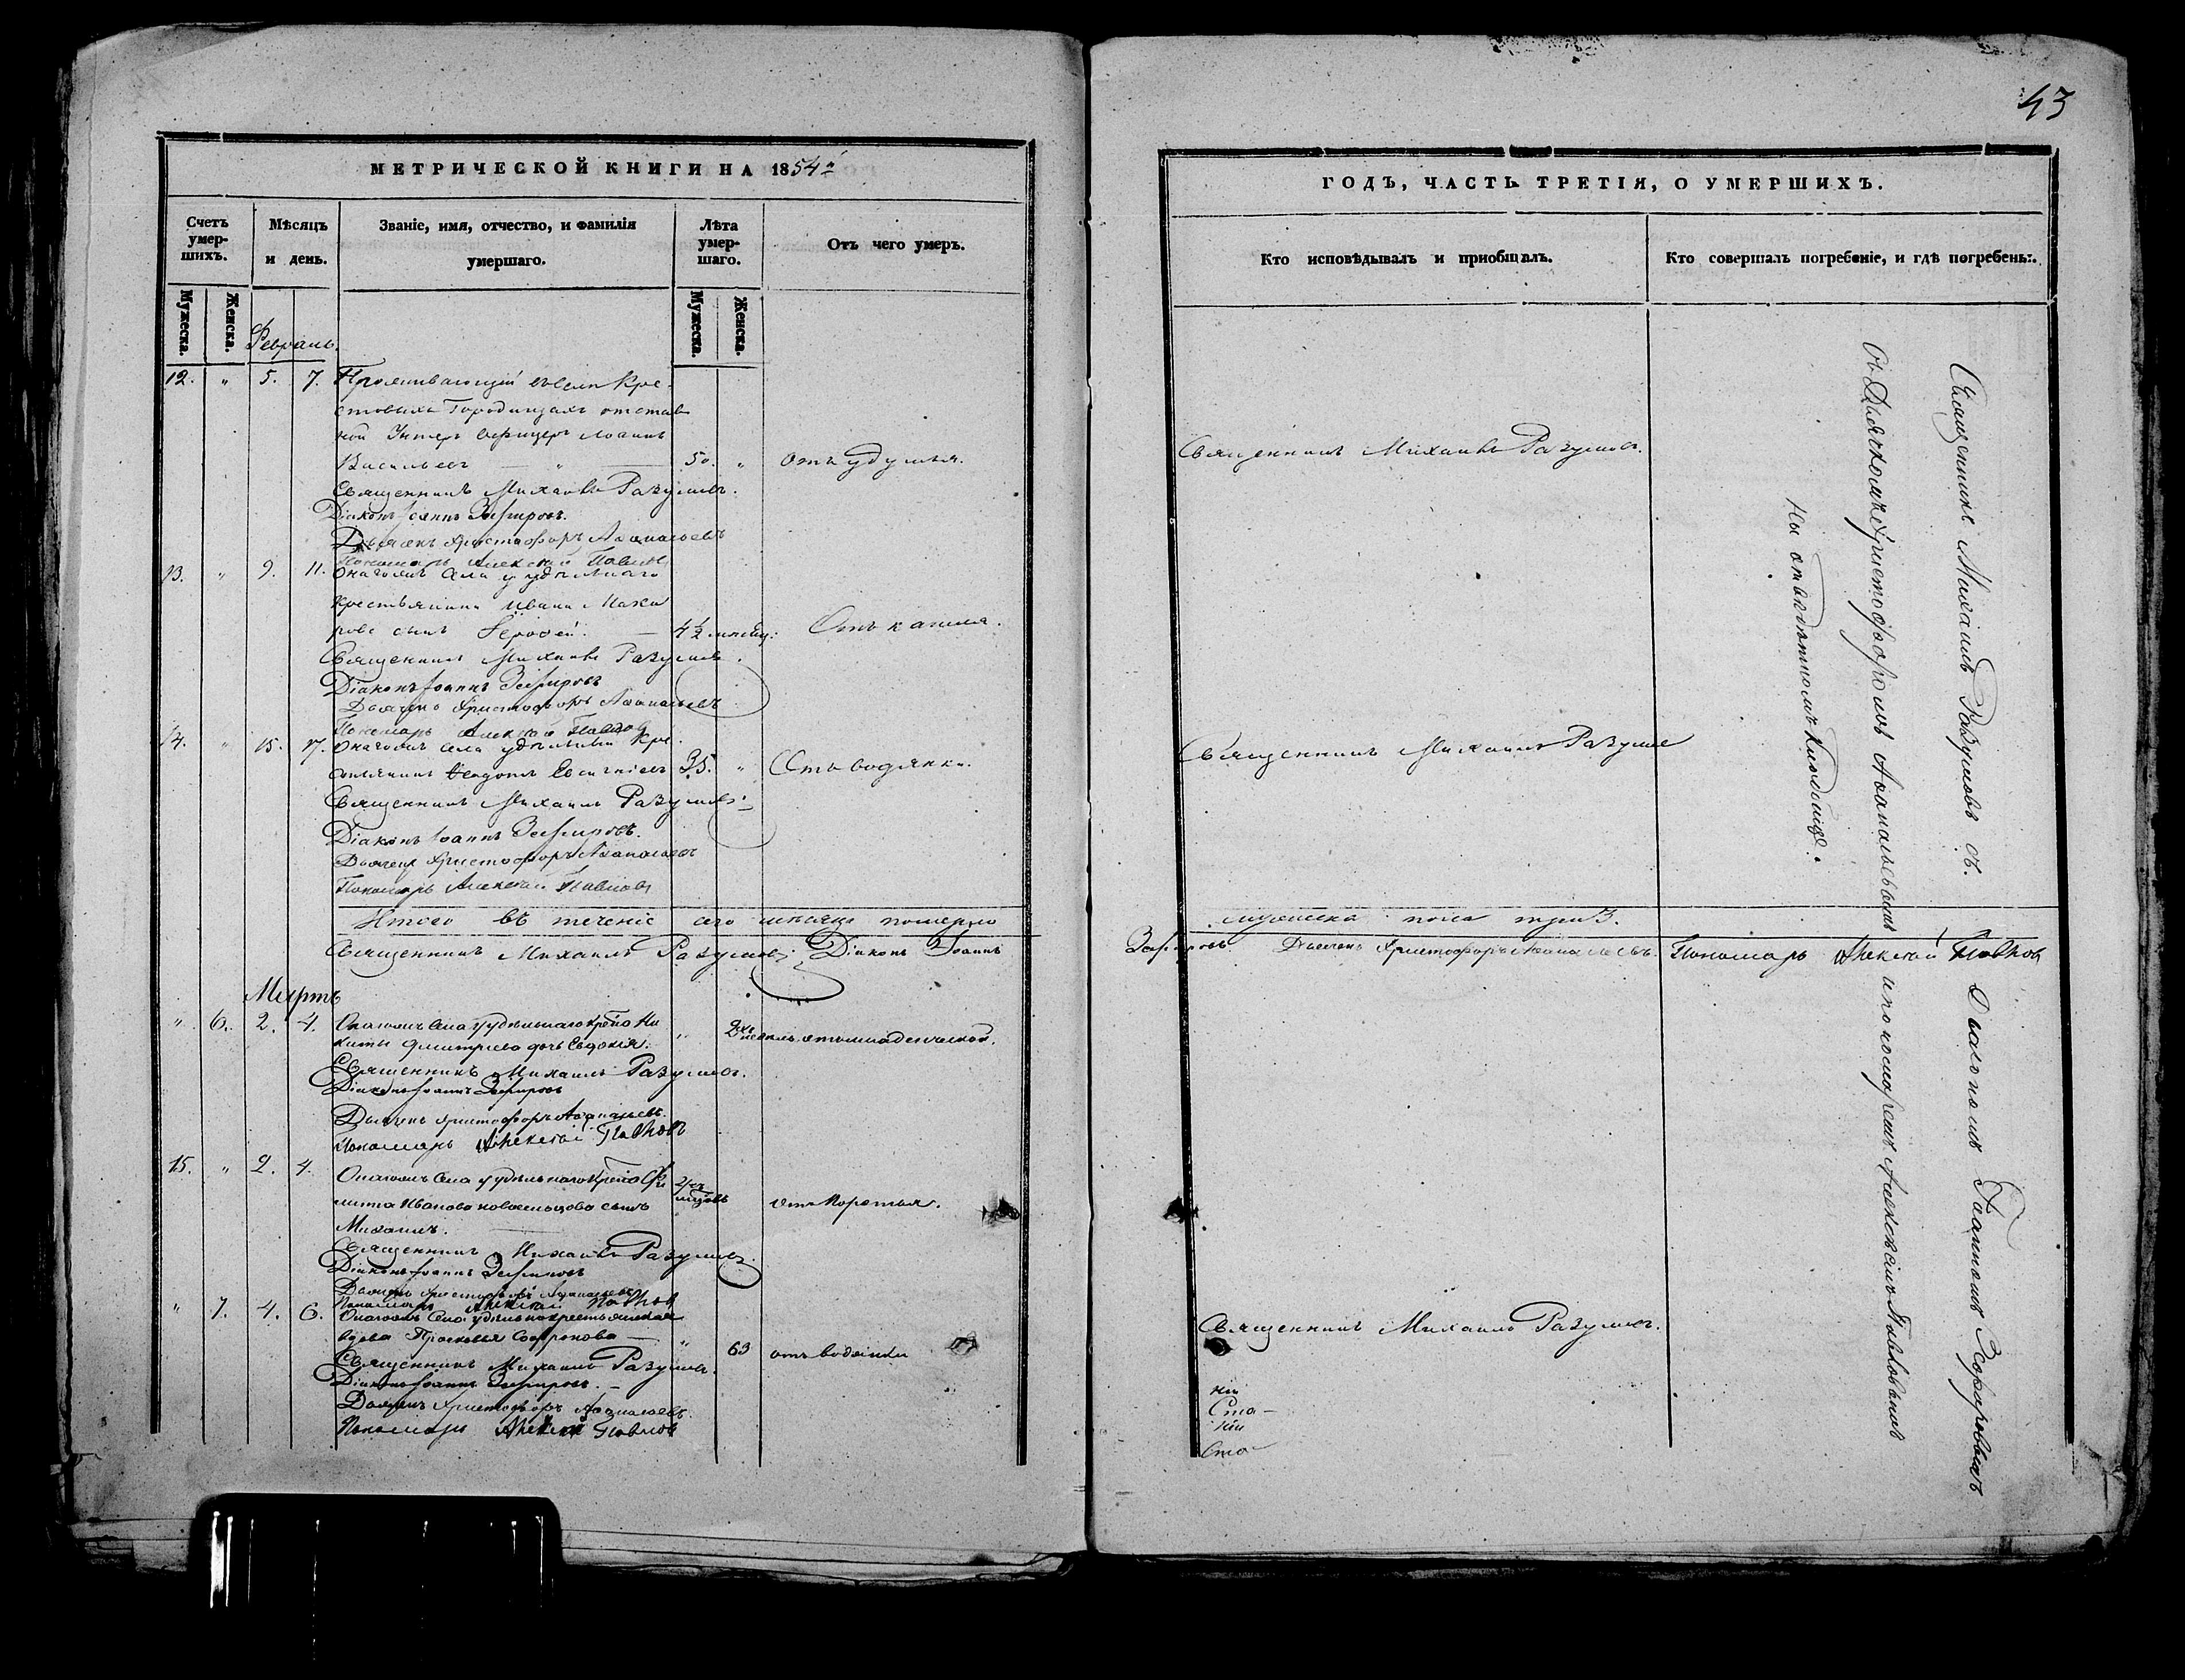 43
МЕТРИЧЕСКОЙ КНИГИ НА 1854й
Счетъ умер-
шихъ.
Мѣсяцъ
и день.
Званіе, имя, отчество, и фамилія
умершаго.
Лѣта
умер-
шаго.
Отъ чего умеръ.
Мужеска.
Женска.
Мужеска.
Женска.
Февраль.
12. " 5. 7. Проживающій въ селѣ Кре-
стовыхъ Городищахъ отстав
ной Унтеръ Офицеръ Іоаннъ
Васильевъ — " — 50. " Отъ удушья.
Священникъ Михаилъ Разумовъ.
Діаконъ Іоаннъ Зефировъ.
Дьячекъ Христофоръ Аѳанасьевъ
Пономарь Алексѣй Павлов
13. " 9. 11. Онагожъ Села удѣльнаго
крестьянина Ивана Мака
рова сынъ Ерофей. — 4½ мѣсяц: Отъ кашля.
Священникъ Михаилъ Разумовъ.
Діаконъ Іоаннъ Зефировъ
Дьячекъ Христофоръ Аѳанасьевъ
Пономарь Алексѣй Павлов
14. " 15. 17. Онагожъ Села удѣльный Кре-
стьянинъ 35. " Отъ водянки.
Священникъ Михаилъ Разумовъ.
Діаконъ Іоаннъ Зефировъ.
Дьячекъ Христофоръ Аѳанасьевъ
Пономарь Алексѣй Павловъ
Итого въ теченіе сего мѣсяца померло
Священникъ Михаилъ Разумовъ Діаконъ Іоаннъ
Мартъ
" 6. 2. 4. Онагожъ Села удѣльнаго Ни
киты Дмитріева дочь Евдокія. " отъ младенческой.
Священникъ Михаилъ Разумовъ.
Діаконъ Іоаннъ Зефировъ
Дьячекъ Христофоръ Аѳанасьевъ.
Пономарь Алексѣй Павловъ
15. " 2. 4. Онагожъ Села удѣльнаго
Иванова сынъ отъ Коротья.
Михаилъ.
Священникъ Михаилъ Разумовъ.
Діаконъ Іоаннъ Зефировъ
Дьячекъ Христофоръ Аѳанасьевъ
Пономарь Алексѣй Павлов
" 7. 4. 6. Онагожъ Села удѣльная крестьянская
вдова Прасковья Софронова — " 63 отъ водянки
Священникъ Михаилъ Разумовъ.
Діаконъ Іоаннъ Зефировъ. —
Дьячекъ Христофоръ Аѳанасьевъ.
Пономарь Алексѣй Павлов
ГОДЪ, ЧАСТЬ ТРЕТІЯ, О УМЕРШИХЪ.
Кто исповѣдывалъ и приобщалъ.
Кто совершалъ погребеніе, и гдѣ погребены.
Священникъ Михаилъ Разумовъ.
Священникъ Михаилъ Разумо
мужеска пола три 3.
Зефировъ. Дьячекъ Христофоръ Аѳанасьевъ. Пономарь Алексѣй Павлов
Священникъ Михаилъ Разумовъ.
Священникъ Михаилъ Разумовъ съ Діакономъ Іоанномъ Зефировымъ
съ Дьячкомъ Христофоромъ Аѳанасьевымъ и пономаремъ Алексѣемъ Павловымъ
на отведенномъ кладбищѣ.